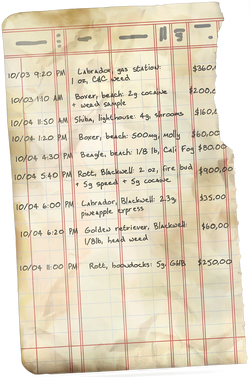 10/03 9:20 PM Labrador, gas station: $360,
1 oz, C&C weed
10/03 1:10 AM Boxer, beach: 2g cocaine $200.0
+ weed sample
10/04 11:50 AM Shiba, lighthouse: 4g, shrooms $160.
10/04 1:20 PM Boxer, beach: 500mg, molly $60.00
10/04 4:30 PM Beagle, beach: 1/8 lb, Cali Fog $80.00
10/04 5:40 PM Rott, Blackwell: 2 oz, fire bud $900.00
+ 5g speed + 5g cocaine
10/04 6:00 PM Labrador, Blackwell: 2.3g, $35.00
pineapple express
10/04 6:20 PM Golden retriever, Blackwell: $60.00
1/8lb, head weed
10/04 11:00 PM Rott, boondocks: 5g, GHB $250.00